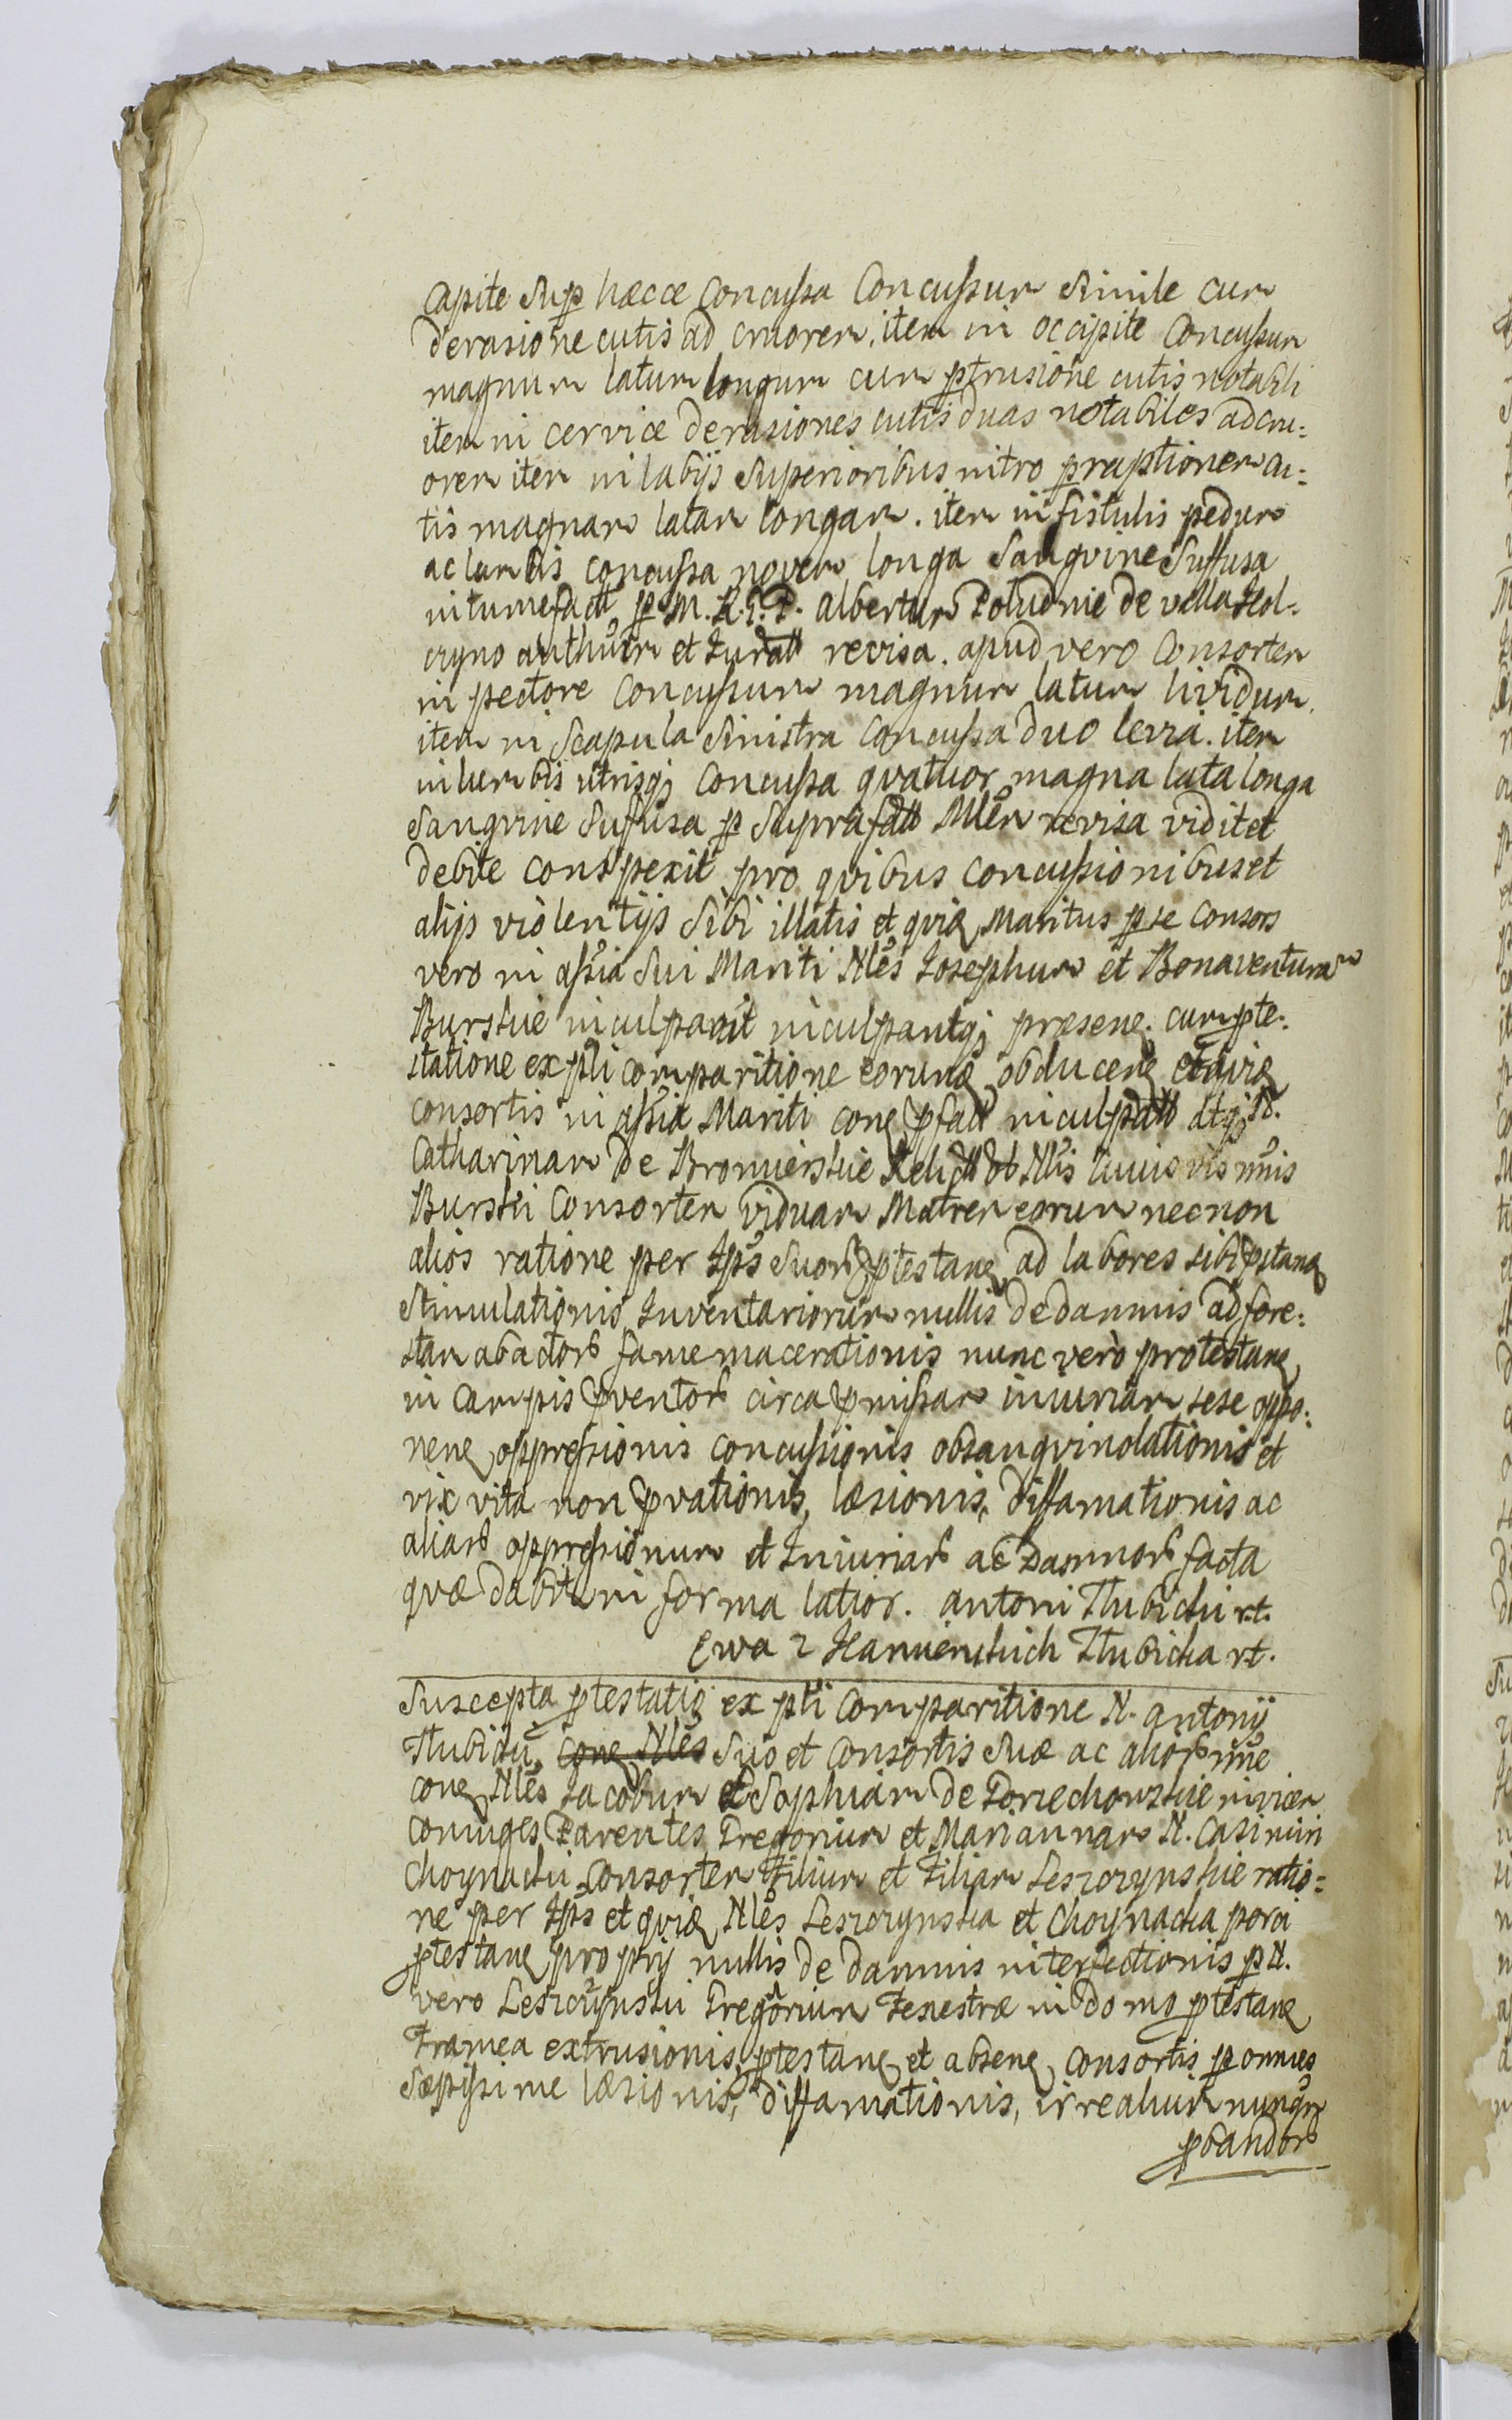 Capite Sup hæcce Concussa Concussum Simile cum
derasione cutis ad cruorem. item in occipite Concussum
magnum latum longum cum ptrusione cutis notabili
item in cervice derasiones cutis duas notabiles ad cru=
orem item in labijs Superioribus intro praptionem cu=
tis magnam latam longam. item in fistulis pedum
ac lumbis concussa novem longa Sangvine Suffusa
intumefacta p M. R. G. P. albertum Poludnie de villa
et Jurat revisa. apud vero Consortem
in pectore Concussum magnum latum lividum.
item in Scapula Sinistra Concussa duo levia. item
in lumbis utrisq; Concussa qvatuor magna lata longa
Sangvine Sufusa p Suprafatt Mlem revisa vidit et
debite conspexit pro qvibus concussionibus et
alijs violentijs Sibi illatis et qvia Maritus p se Consors
vero in assia Sui Mariti Nles Josephum et Bonaventuram
Burskie inculpavit inculpantq; præsene. cum pte=
statione ex pti comparitione eorund obducene et qvia
consortis in assia Mariti cone pfatt inculpatt atq; N.
Catharinam de Bromierskie Relictt ob Nlis
Burskii Consortem viduam Matrem eorum necnon
alios ratione per Ips Suors ptestane ad labores sibi pstane
Stimulationis Inventariorum nullis de damnis ad fore=
stam abactors fame macerationis nunc verò protestane
in Campis pventors circa pmissam iniuriam sese oppo=
nene oppressionis concussionis obsangvinolationis et
vix vita non pvationis, læsionis, diffamationis ac
aliars oppressionum et Iniuriars ac Damnors facta
qvæ dabitr in forma latior. antoni Tlubicki rt.
Ewa z Tlubicka rt.
Suscepta ptestatio ex pti Comparitione N. Antonij
Tlubicki, cone Nles Suo et Consortis Suæ ac aliors nne
cone Nles Jacobum et Sophiam de invicem
Coniuges Parentes Gregorium et Mariannam N. Casimiri
Choynacki Consortem Filium et Filiam Leszczynskie ratio=
ne per Ips et qvia Nles Leszczynska et Choynacka pora
ptestane proprij nullis de damnis interfectionis p N.
vero Leszczynskii Gregorium Fenestræ in domo ptestane
Framea extrusionis, ptestane et absene Consortis p omnes
Sæpissime læsionis, diffamationis, irrealium nunqm
pbandors